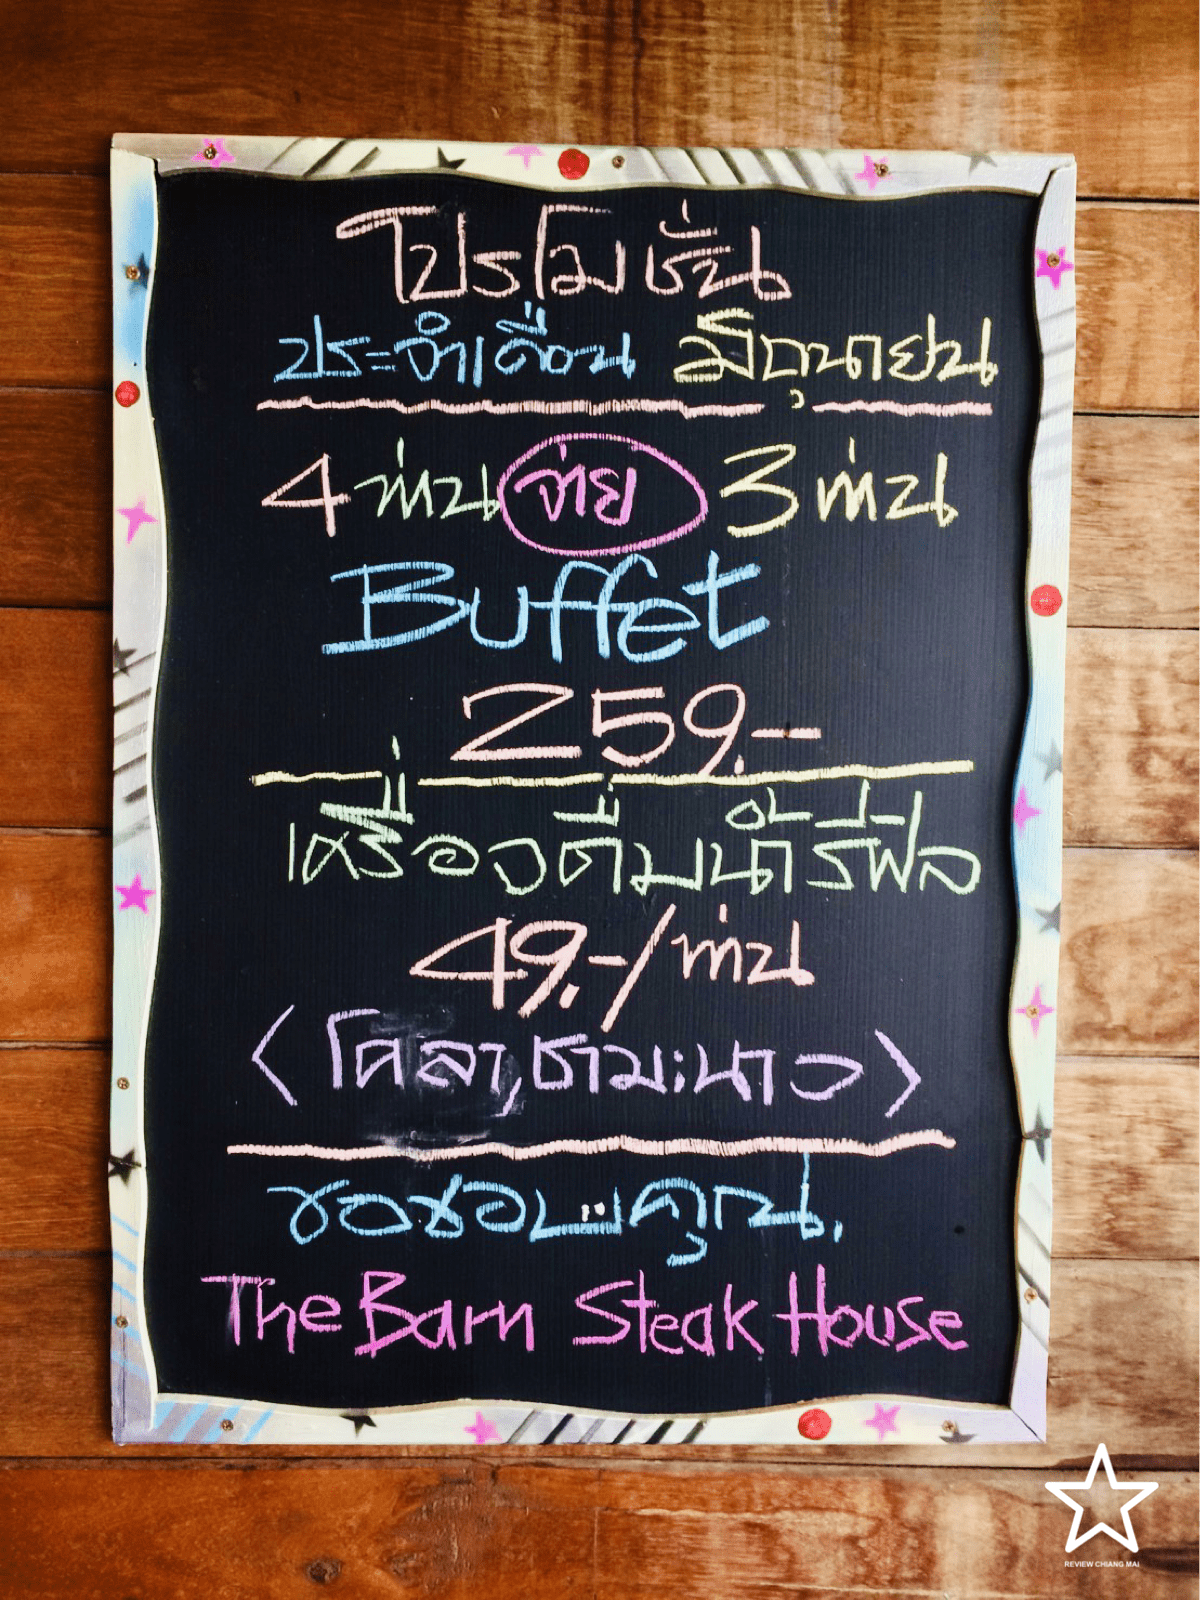 โปรโมชั่น
ประจำเดือน มิถุนายน
4 ท่าน จ่าย 3 ท่าน
Buffet
259.-
เครื่องดื่มน้ำรีฟิล
49.-/ท่าน
<โคลา,ชามะนาว>
ขอขอบคุณ.
The Barn Steak House
REVIEW CHIANG MAI